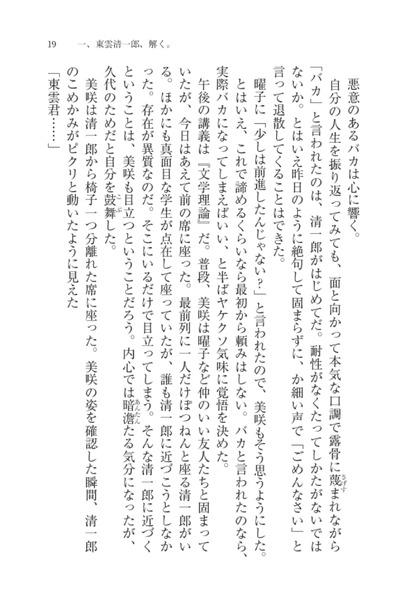 19　一、東雲清一郎、解く。
悪意のあるバカは心に響く。
自分の人生を振り返ってみても、面と向かって本気な口調で露骨に蔑まれながら
「バカ」と言われたのは、清一郎がはじめてだ。耐性がなくたってしかたがないでは
ないか。とはいえ昨日のように絶句して固まらずに、か細い声で「ごめんなさい」と
言って退散してくることはできた。
曜子に「少しは前進したんじゃない？」と言われたので、美咲もそう思うようにした。
とはいえ、これで諦めるくらいなら最初から頼みはしない。バカと言われたのなら、
実際バカになってしまえばいい、と半ばヤケクソ気味に覚悟を決めた。
午後の講義は『文学理論』だ。普段、美咲は曜子など仲のいい友人たちと固まって
いたが、今日はあえて前の席に座った。最前列に一人だけぽつねんと座る清一郎がい
る。ほかにも真面目な学生が点在して座っていたが、誰も清一郎に近づこうとしなか
った。存在が異質なのだ。そこにいるだけで目立ってしまう。そんな清一郎に近づく
ということは、美咲も目立つということだろう。内心では暗澹たる気分になったが、
久代のためだと自分を鼓舞した。
美咲は清一郎から椅子一つ分離れた席に座った。美咲の姿を確認した瞬間、清一郎
のこめかみがピクリと動いたように見えた
「東雲君……」